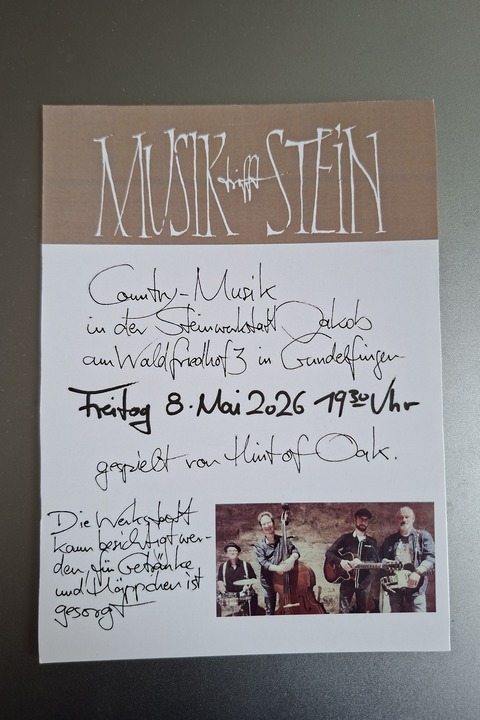 MUSIK trifft STEIN
Country-Musik
in der Steinwerkstatt Jakob
am Waldfriedhof 3 in Gundelfingen
Freitag 8. Mai 2026 19³⁰ Uhr
gespielt von Hint of Oak.
Die Werkstatt
kann besichtigt wer-
den, für Getränke
und Häppchen ist
gesorgt